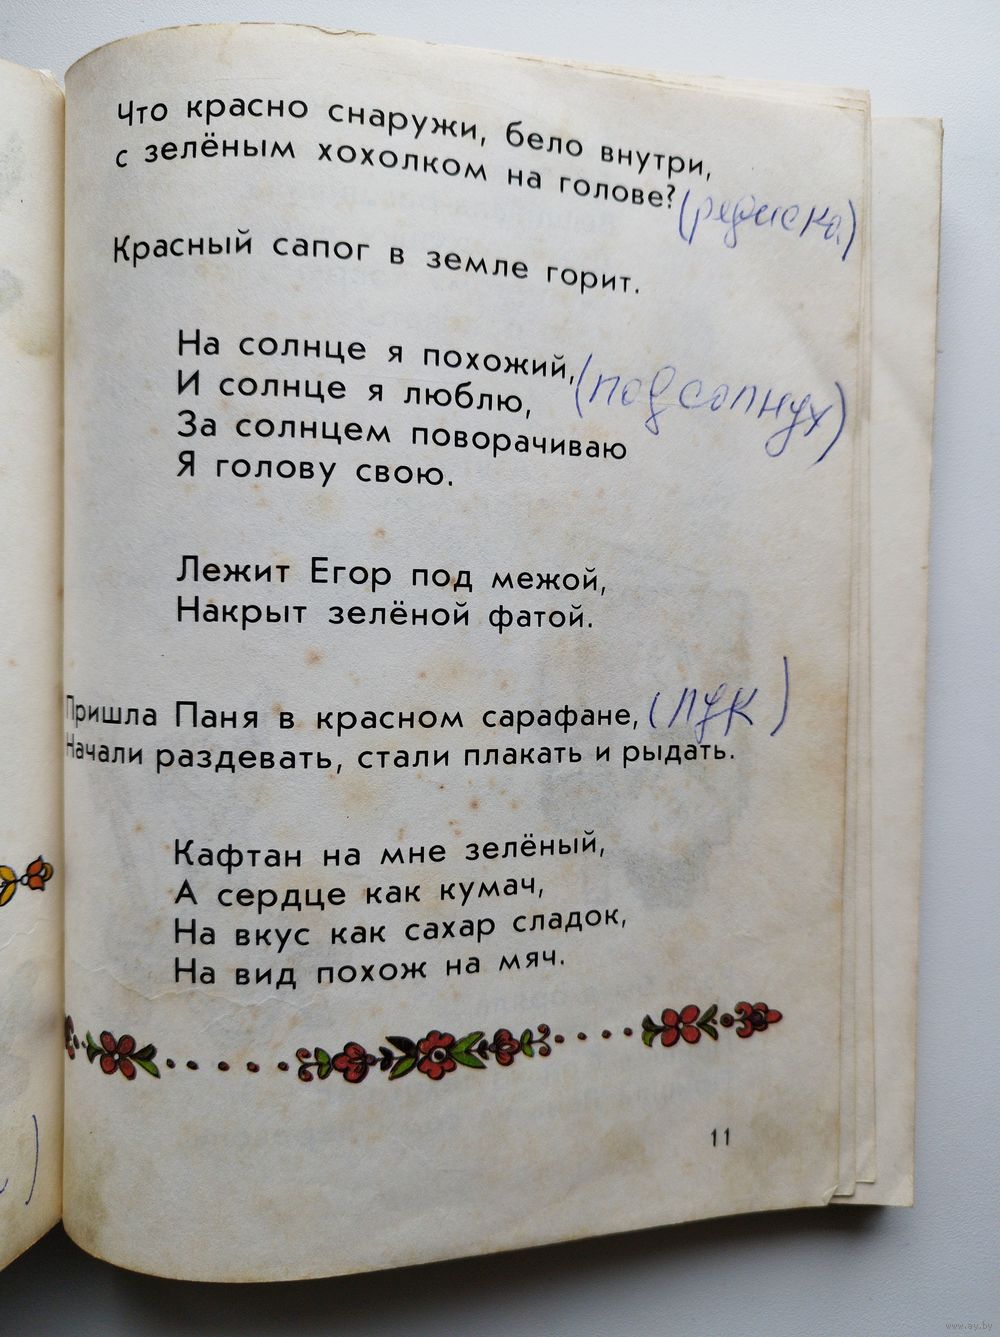 Что красно снаружи, бело внутри,
с зелёным хохолком на голове? (редиска.)
Красный сапог в земле горит.
На солнце я похожий, (подсолнух)
И солнце я люблю,
За солнцем поворачиваю
Я голову свою.
Лежит Егор под межой,
Накрыт зелёной фатой.
Пришла Паня в красном сарафане, (лук)
Начали раздевать, стали плакать и рыдать.
Кафтан на мне зелёный,
А сердце как кумач,
На вкус как сахар сладок,
На вид похож на мяч.
11
www.ay.by